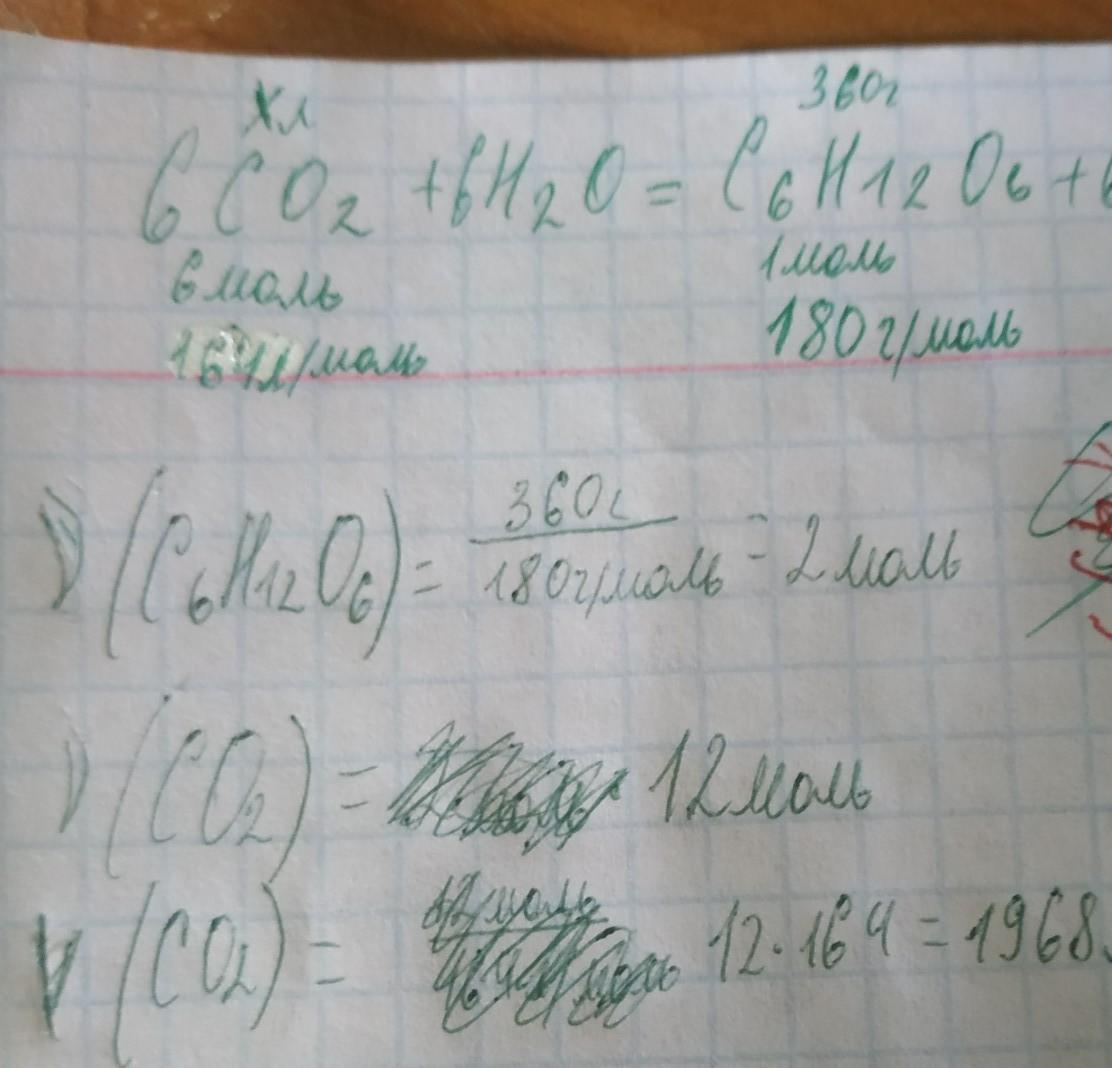 Xл 360г
6CO2 + 6H2O = C6H12O6 + 6
6 моль 1 моль
164л/моль 180г/моль
ν(C6H12O6) = 360г/180г/моль = 2 моль
ν(CO2) = 12 моль
V(CO2) = 12·164 = 1968